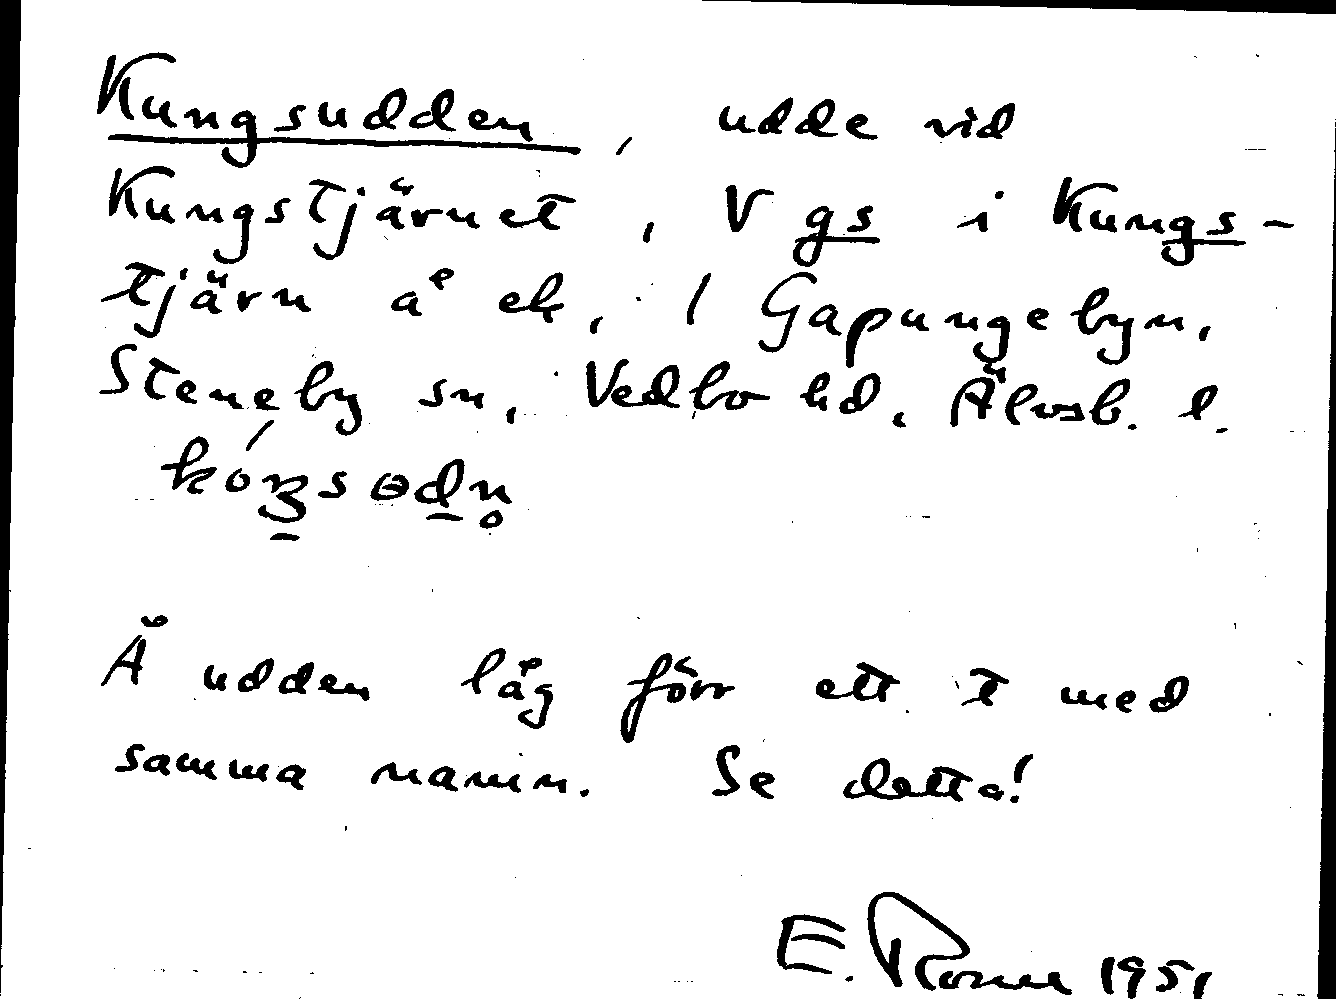 Kungsudden, udde vid
Kungstjärnet, V gs i Kungs-
tjärn å ek, 1 Gapungebyn,
Steneby sn, Vedbo hd, Älvsb. l.
Å udden låg förr ett t med
samma namn. Se detta!
E. 1951